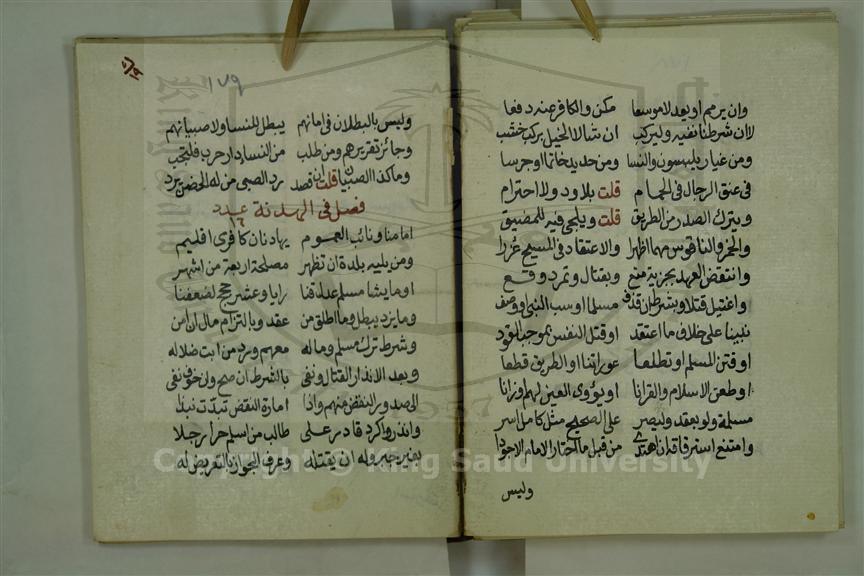 وان يرمم او يعد لا موسعا مكن والكافر عنه دفعا
لا ان شرطنا نفيه وليركب ان شا لا الخيل بركب خشب
ومن غيار يلبسون والنسا ومن حديد خاتما او جرسا
في عنق الرجال في الحمام قلت بلا ود ولا احترام
ويترك الصدر من الطريق قلت ويلجى فيه للمضيق
والخمر والناقوس مهما اظهرا والاعتقاد في المسيح عزرا
وانتقض العهد بجزية منع وبقتال وتمرد وقع
واغتيل قتلا وبشرط ان قذف مسلما او سب النبي او وصف
نبينا على خلاف ما اعتقد او قتل النفس بموجب القود
او فتن المسلم او تطلعا عوراتنا او الطريق قطعا
او طعن الاسلام والقرانا او يؤوي العين لهم او زانا
مسلمة ولو بعقد وليصر على الصحيح مثل كامل اسر
وامتنع استرقاقه ان اهتدى من قبل ما اختار الامام الاجودا
وليس
١٧٩
وليس بالبطلان في امانهم يبطل للنسا ولا صبيانهم
وجائز تقريرهم ومن طلب من النساء دار حرب فلتجب
وهاكذا الصبيان قلت ان قصد رد الصبي من له الحضن يرد
فصل في الهدنة
امامنا ونائب العموم يهادنان كافري اقليم
ومن يليه بلدة ان تظهر مصلحة اربعة من اشهر
او ما يشا مسلم عدل قنا رايا وعشر حجج لضعفنا
وما يزد يبطل وما اطلق من عقد وبالتزام مال ان امن
وشرط ترك مسلم وماله معهم ورد من ابت ضلاله
وبعد الانذار القتال ونفى بالشرط ان صح ولخوف نفي
الى صدور النقض منهم واذا امارة النقض تبدت نبذا
وانذروا كرد قادر على طالب من اسلم حرا رجلا
بغير جبر وله ان يقتله وعرف الجواز بالتعريض له
Copyright © King Saud University
1957